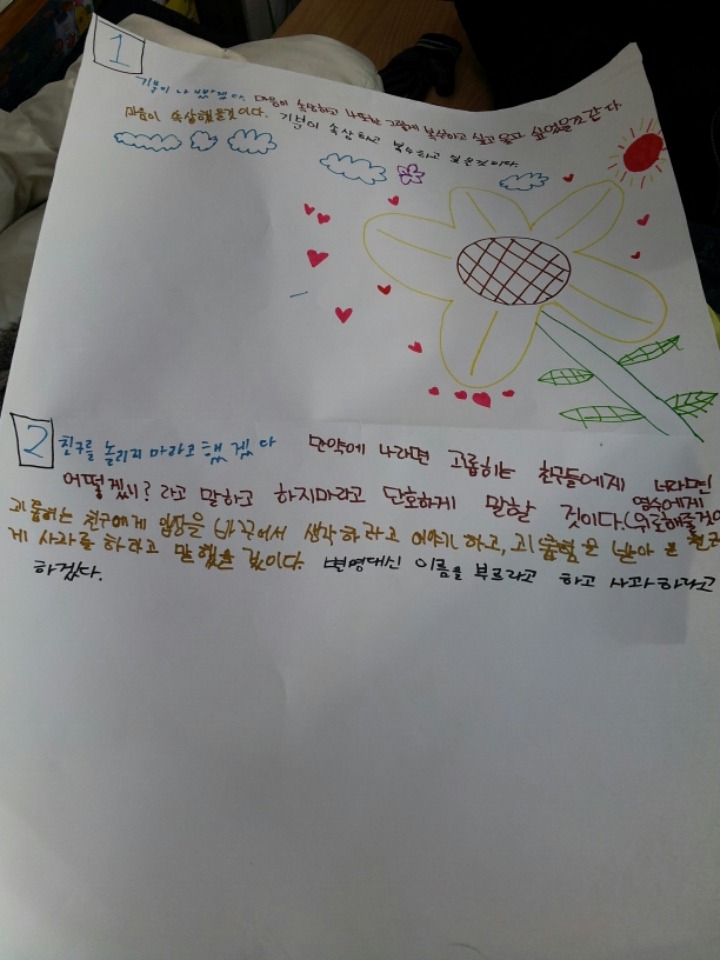 1
기분이 나빴겠다. 마음이 속상하고 나또한 그렇게 복수하고 싶고 울고 싶었을것 같다.
마음이 속상했을것이다. 기분이 속상하고 복수하고 싶은것이다.
2 친구를 놀리지 마라고 했겠다 만약에 나라면 괴롭히는 친구들에게 너라면
어떻겠니? 라고 말하고 하지마라고 단호하게 말할 것이다.(영수에게 위로해줄것이
괴롭히는 친구에게 입장을 바꾸어서 생각하라고 이야기 하고, 괴롭힘을 받아 온 친구
게 사과를 하라고 말했을 것이다. 별명대신 이름을 부르라고 하고 사과하라고
하겠다.